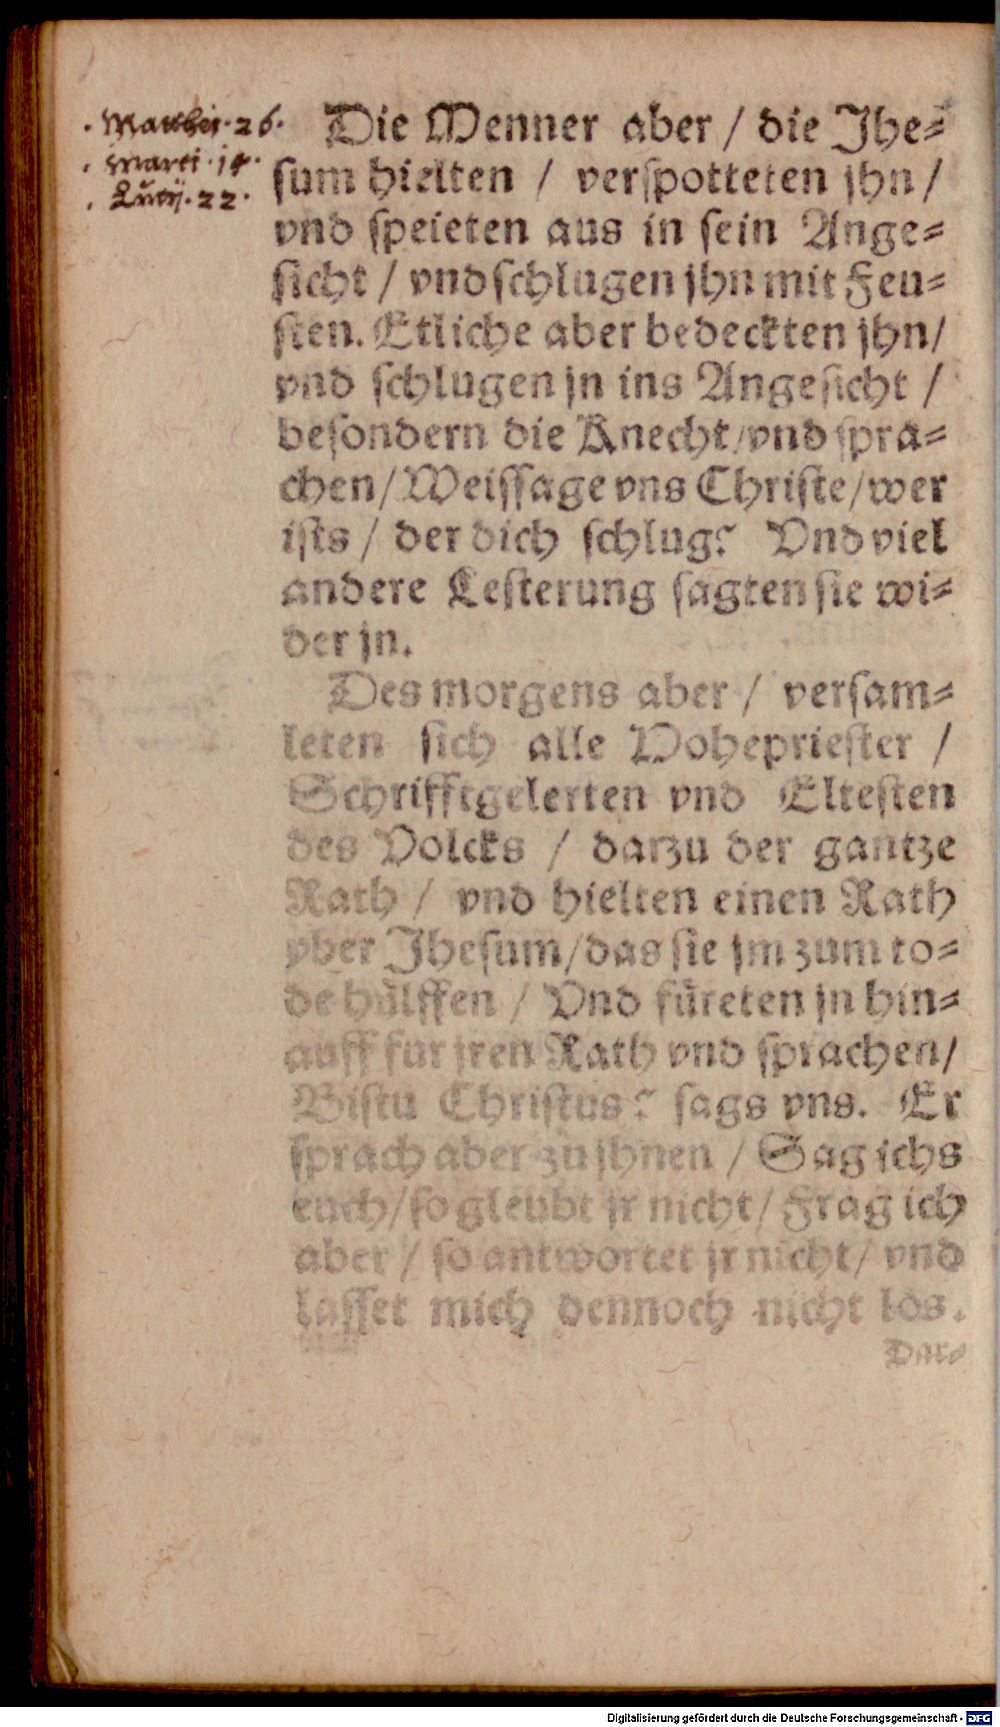 . Matthei . 26 .
. Marci . 14 .
. Lucę . 22 .
Die Menner aber / die Jhe⸗
ſum hielten / verſpotteten jhn /
vnd ſpeieten aus in ſein Ange⸗
ſicht / vnd ſchlugen jhn mit Feu⸗
ſten. Etliche aber bedeckten jhn /
vnd ſchlugen jn ins Angeſicht /
beſondern die Knecht / vnd ſpra⸗
chen / Weiſſage vns Chriſte / wer
iſts / der dich ſchlug? Vnd viel
andere Leſterung ſagten ſie wi⸗
der jn.
Des morgens aber / verſam⸗
leten ſich alle Hoheprieſter /
Schrifftgelerten vnd Elteſten
des Volcks / darzu der gantze
Rath / vnd hielten einen Rath
vber Jheſum / das ſie jm zum to⸗
de hülffen / Vnd füreten jn hin⸗
auff fur jren Rath vnd ſprachen /
Biſtu Chriſtus? ſags vns. Er
ſprach aber zu jhnen / Sag ichs
euch / ſo gleubt jr nicht / Frag ich
aber / ſo antwortet jr nicht / vnd
laſſet mich dennoch nicht los.
Dar⸗
Digitalisierung gefördert durch die Deutsche Forschungsgemeinschaft - DFG